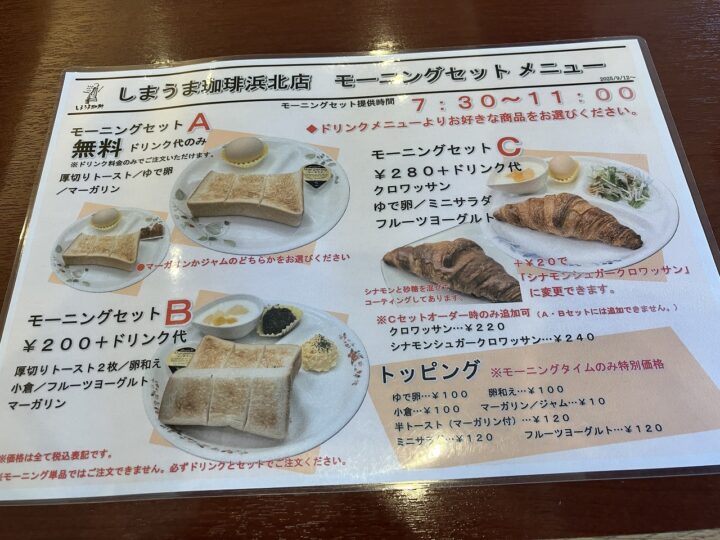 しまうま珈琲
しまうま珈琲浜北店 モーニングセット メニュー
2025/9/12~
モーニングセット提供時間 7:30~11:00
◆ドリンクメニューよりお好きな商品をお選びください。
モーニングセット A
無料 ドリンク代のみ
※ドリンク料金のみでご注文いただけます。
厚切りトースト/ゆで卵
/マーガリン
●マーガリンかジャムのどちらかをお選びください
モーニングセット B
¥200+ドリンク代
厚切りトースト2枚/卵和え
小倉/フルーツヨーグルト
マーガリン
※価格は全て税込表記です。
※モーニング単品ではご注文できません。必ずドリンクとセットでご注文ください。
モーニングセット C
¥280+ドリンク代
クロワッサン
ゆで卵/ミニサラダ
フルーツヨーグルト
+¥20で
「シナモンシュガークロワッサン」
に変更できます。
シナモンと砂糖を混ぜて
コーティングしてあります。
※Cセットオーダー時のみ追加可(A・Bセットには追加できません。)
クロワッサン…¥220
シナモンシュガークロワッサン…¥240
トッピング ※モーニングタイムのみ特別価格
ゆで卵…¥100 卵和え…¥100
小倉…¥100 マーガリン/ジャム…¥10
半トースト(マーガリン付)…¥120
ミニサラダ…¥120 フルーツヨーグルト…¥120